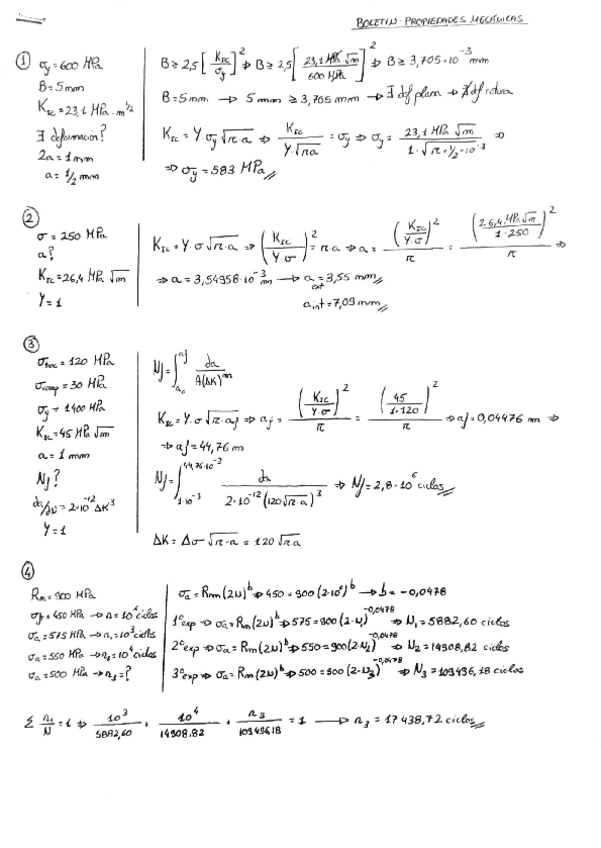 BOLETIN: PROPIEDADES MECÁNICAS
① σy = 600 MPa
B = 5mm
K_IC = 23,1 MPa·m^1/2
∃ deformación?
2a = 1mm
a = 1/2 mm
B ≥ 2,5 [K_IC/σy]² ⇒ B ≥ 2,5 [23,1 MPa √m / 600 MPa]² ⇒ B ≥ 3,705·10⁻³ mm
B = 5mm → 5mm ≥ 3,705 mm → ∃ def plana →
K_IC = Y σy √π·a ⇒ K_IC / Y·√πa = σy ⇒ σy = 23,1 MPa √m / 1·√π·1/2·10⁻³ ⇒
⇒ σy = 583 MPa
② σ = 250 MPa
a?
K_IC = 26,4 MPa √m
Y = 1
K_IC = Y·σ √π·a ⇒ (K_IC / Y·σ)² = πa ⇒ a = (K_IC / Y·σ)² / π = (26,4 MPa √m / 1·250)² / π ⇒
⇒ a = 3,54958·10⁻³ m → a ext = 3,55 mm
a int = 7,09 mm
③ σtrac = 120 MPa
σcomp = 30 MPa
σy = 1400 MPa
K_IC = 45 MPa √m
a = 1 mm
Nf?
da/dN = 2·10⁻¹² ΔK³
Y = 1
Nf = ∫ao^af da / A(ΔK)^m
K_IC = Y·σ √π·af ⇒ af = (K_IC / Y·σ)² / π = (45 / 1·120)² / π ⇒ af = 0,04476 m ⇒
⇒ af = 44,76 m
Nf = ∫1·10⁻³^44,76·10⁻³ da / 2·10⁻¹² (120√π·a)³ ⇒ Nf = 2,8·10⁶ ciclos
ΔK = Δσ √π·a = 120 √πa
④
Rm = 900 MPa
σf = 450 MPa → n = 10⁶ ciclos
σa = 575 MPa → n₁ = 10³ ciclos
σa = 550 MPa → n₂ = 10⁴ ciclos
σa = 500 MPa → n₃ = ?
σa = Rm (2N)^b ⇒ 450 = 900 (2·10⁶)^b → b = -0,0478
1º exp ⇒ σa = Rm (2N)^b ⇒ 575 = 900 (2·N₁)^-0,0478 ⇒ N₁ = 5882,60 ciclos
2º exp ⇒ σa = Rm (2N)^b ⇒ 550 = 900 (2·N₂)^-0,0478 ⇒ N₂ = 14908,82 ciclos
3º exp ⇒ σa = Rm (2N)^b ⇒ 500 = 900 (2·N₃)^-0,0478 ⇒ N₃ = 109496,18 ciclos
Σ ni/N = 1 ⇒ 10³/5882,60 + 10⁴/14908,82 + n₃/109496,18 = 1 → n₃ = 17438,72 ciclos